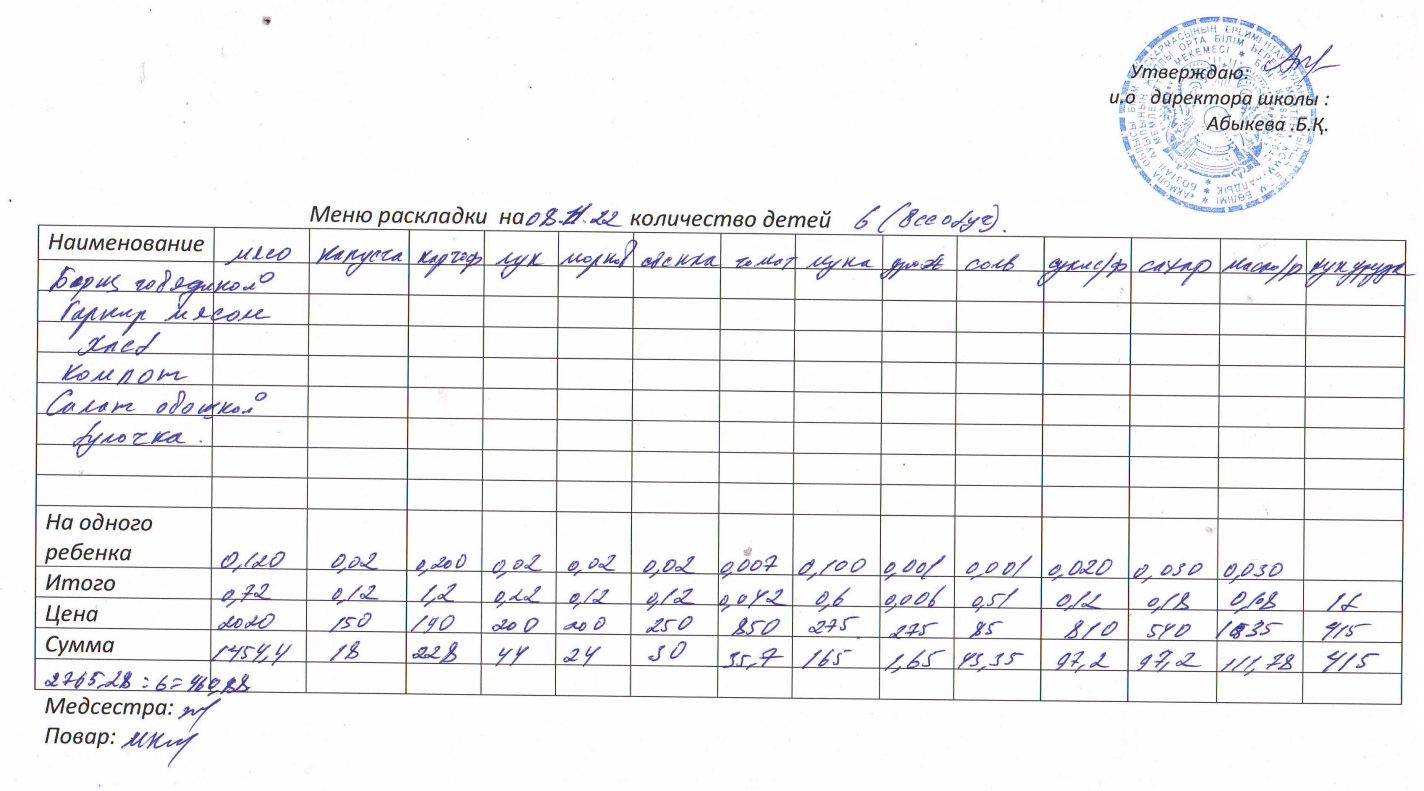 Утверждаю:
и.о директора школы :
Абыкева .Б.Қ.
Меню раскладки на 08.11.22 количество детей 6 (Всеобуч).
Наименование мясо капуста картоф лук морков свекла томат мука дрож соль сухие/ф сахар масло/р кукуруза
Борщ говядиной
Гарнир мясом
Хлеб
Компот
Салат овощной
булочка.
На одного
ребенка 0,120 0,02 0,200 0,02 0,02 0,02 0,007 0,100 0,001 0,001 0,020 0,030 0,030
Итого 0,72 0,12 1,2 0,22 0,12 0,12 0,042 0,6 0,006 0,51 0,12 0,18 0,18 1
Цена 2020 150 190 200 200 250 850 275 275 85 810 540 415
Сумма 1454,4 18 228 44 24 30 35,7 165 1,65 43,35 97,2 97,2 111,78 415
2765,28 : 6 = 460,88
Медсестра:
Повар: